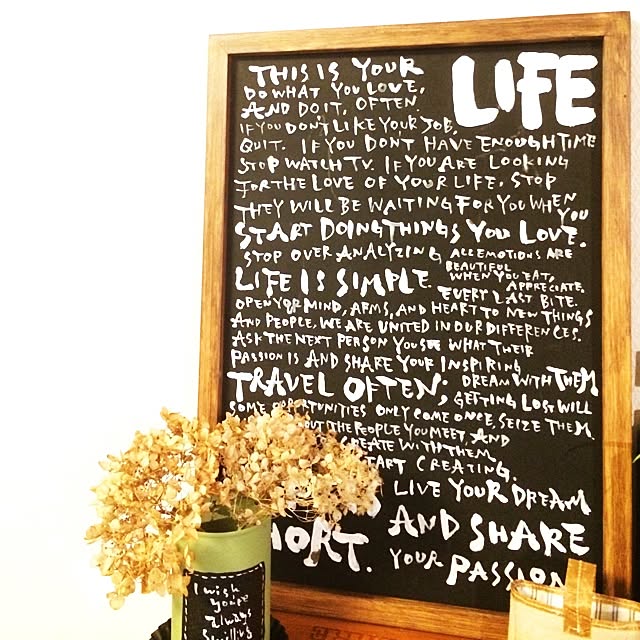 THIS IS YOUR LIFE
DO WHAT YOU LOVE,
AND DO IT, OFTEN.
IF YOU DON'T LIKE YOUR JOB,
QUIT. IF YOU DONT HAVE ENOUGH TIME
STOP WATCH TV. IF YOU ARE LOOKING
FOR THE LOVE OF YOUR LIFE, STOP
THEY WILL BE WAITING FOR YOU WHEN YOU
START DOING THINGS YOU LOVE.
STOP OVER ANALYZING ALL EMOTIONS ARE
BEAUTIFUL
LIFE IS SIMPLE. WHEN YOU EAT,
APPRECIATE,
EVERY LAST BITE.
OPEN YOR MIND, ARMS, AND HEART TO NEW THINGS
AND PEOPLE, WE ARE UNITED IN OUR DIFFERENCES.
ASK THE NEXT PERSON YOU SEE WHAT THEIR
PASSION IS AND SHARE YOUR INSPIRING
DREAM WITH THEM
TRAVEL OFTEN; GETTING LOST WILL
SOME OPPORTUNITIES ONLY COME ONCE, SEIZE THEM.
OUT THE PEOPLE YOU MEET, AND
CREATE WITH THEM
TART CREATING.
LIVE YOUR DREAM
HORT. AND SHARE
YOUR PASSION
I wish
you're
always
Smiling